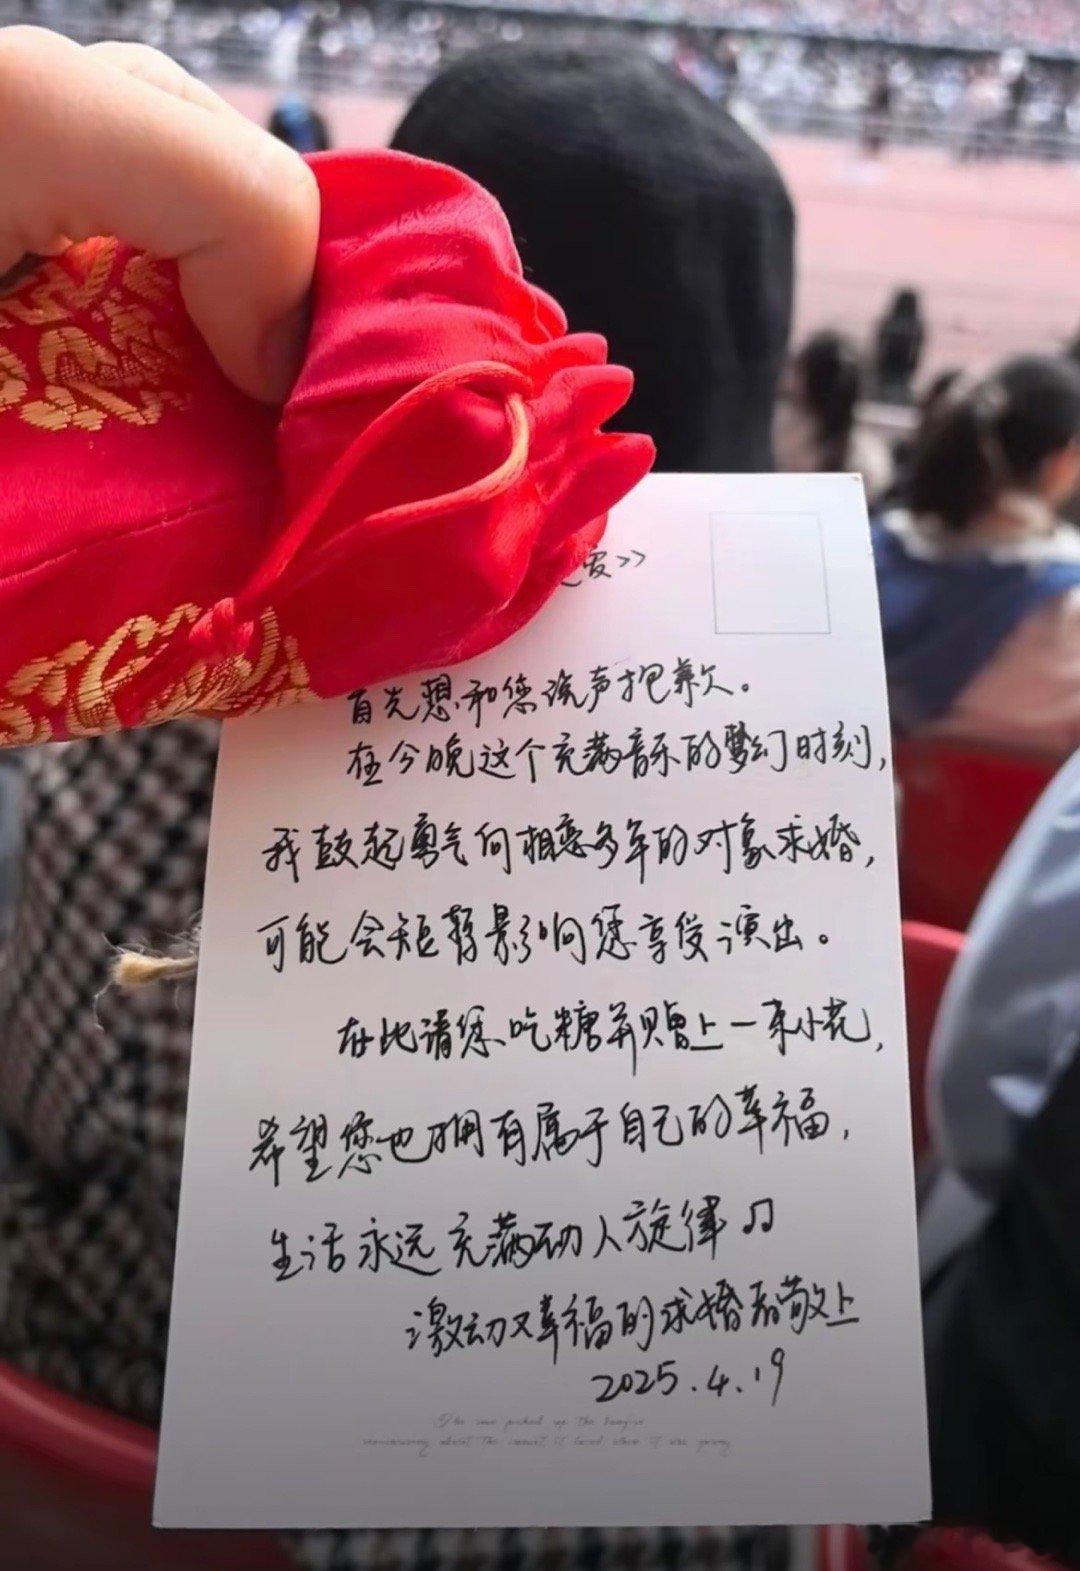 爱》
首先想和您说声抱歉。
在今晚这个充满音乐的梦幻时刻,
我鼓起勇气向相恋多年的对象求婚,
可能会短暂影响您享受演出。
在此请您吃糖并赠上一束小花,
希望您也拥有属于自己的幸福,
生活永远充满动人旋律♫
激动又幸福的求婚者敬上
2025.4.19